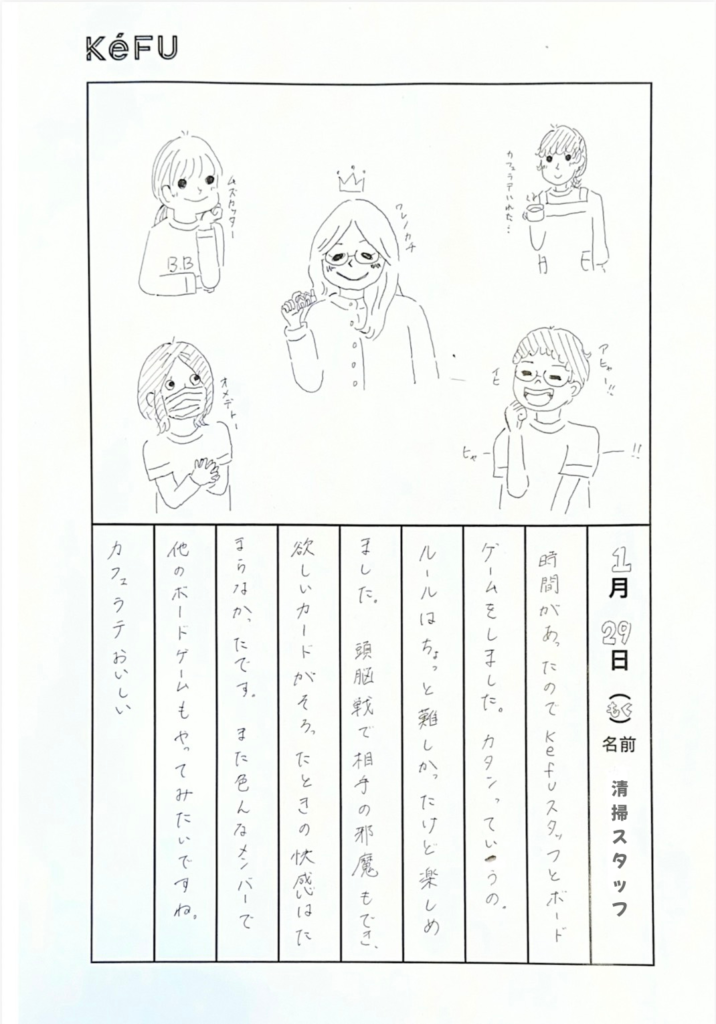 KéFU
ムズカッター
B.B
ワレノカチ
カフェラテいれた！
オメデトー
アヒャー!!
イヒ
ヒャー
!!
1月29日(もく)名前 清掃スタッフ
時間があったのでkefuスタッフとボード
ゲームをしました。カタンっていうの。
ルールはちょっと難しかったけど楽しめ
ました。 頭脳戦で相手の邪魔もでき、
欲しいカードがそろったときの快感はた
まらなかったです。また色んなメンバーで
他のボードゲームもやってみたいですね。
カフェラテおいしい